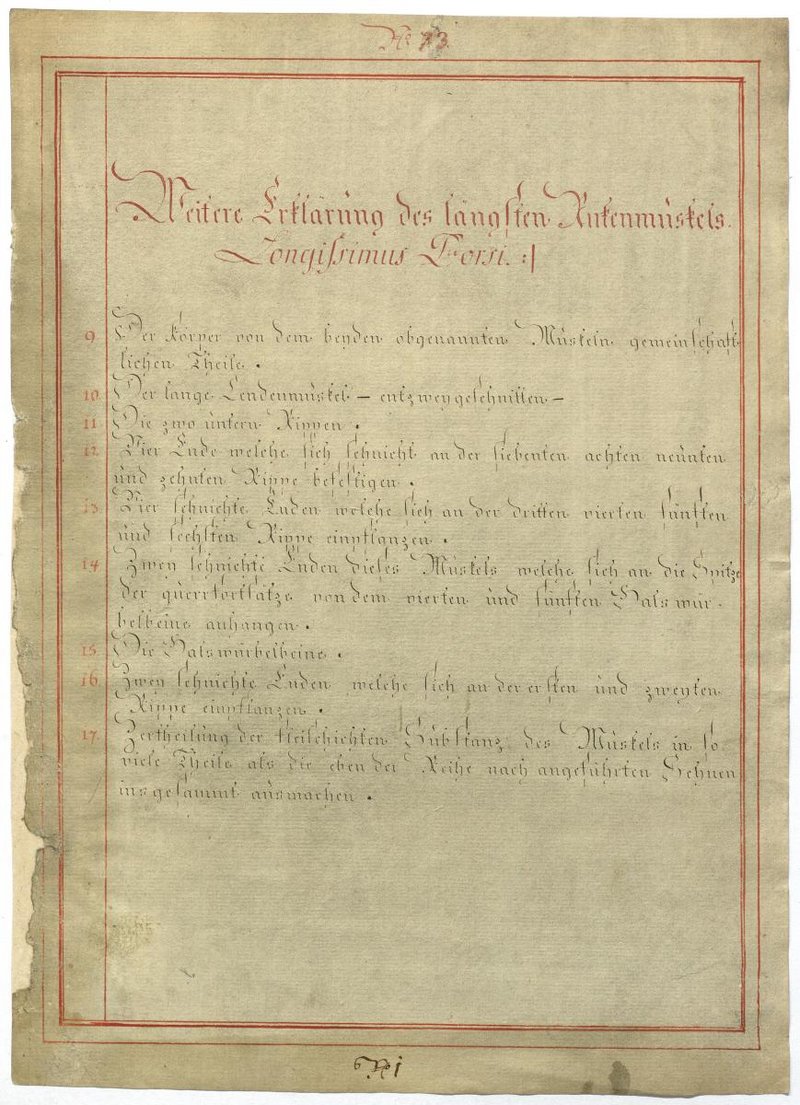 No 73
Weitere Erklärung des längsten Rukenmuskels.
Longissimus Dorsi. :|
9 Der Körper von dem beyden obgenannten Muskeln gemeinschaft
lichen Theile .
10 Der lange Lendenmuskel – entzweygeschnitten –
11 Die zwo untern Rippen .
12 Vier Ende welche sich sehnicht an der siebenten achten neunten
und zehnten Rippe befestigen .
13. Vier sehnichte Enden welche sich an der dritten vierten fünften
und sechsten Rippe einpflanzen .
14 Zwey sehnichte Enden dieses Muskels welche sich an die Spitze
der querrfortsätze von dem vierten und fünften Hals wür-
belbeine anhangen .
15. Die Halswürbelbeine .
16. Zwey sehnichte Enden welche sich an der ersten und zweyten
Rippe einpflanzen .
17. Zertheilung der fleischichten Substanz des Muskels in so
viele Theile als die eben der Reihe nach angeführten Sehnen
insgesammt ausmachen .